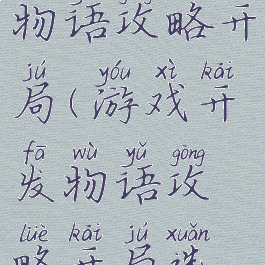 物语攻略开
jú yóu xì kāi
局(游戏开
fā wù yǔ gōng
发物语攻
lüè kāi jú xuǎn
略开局选